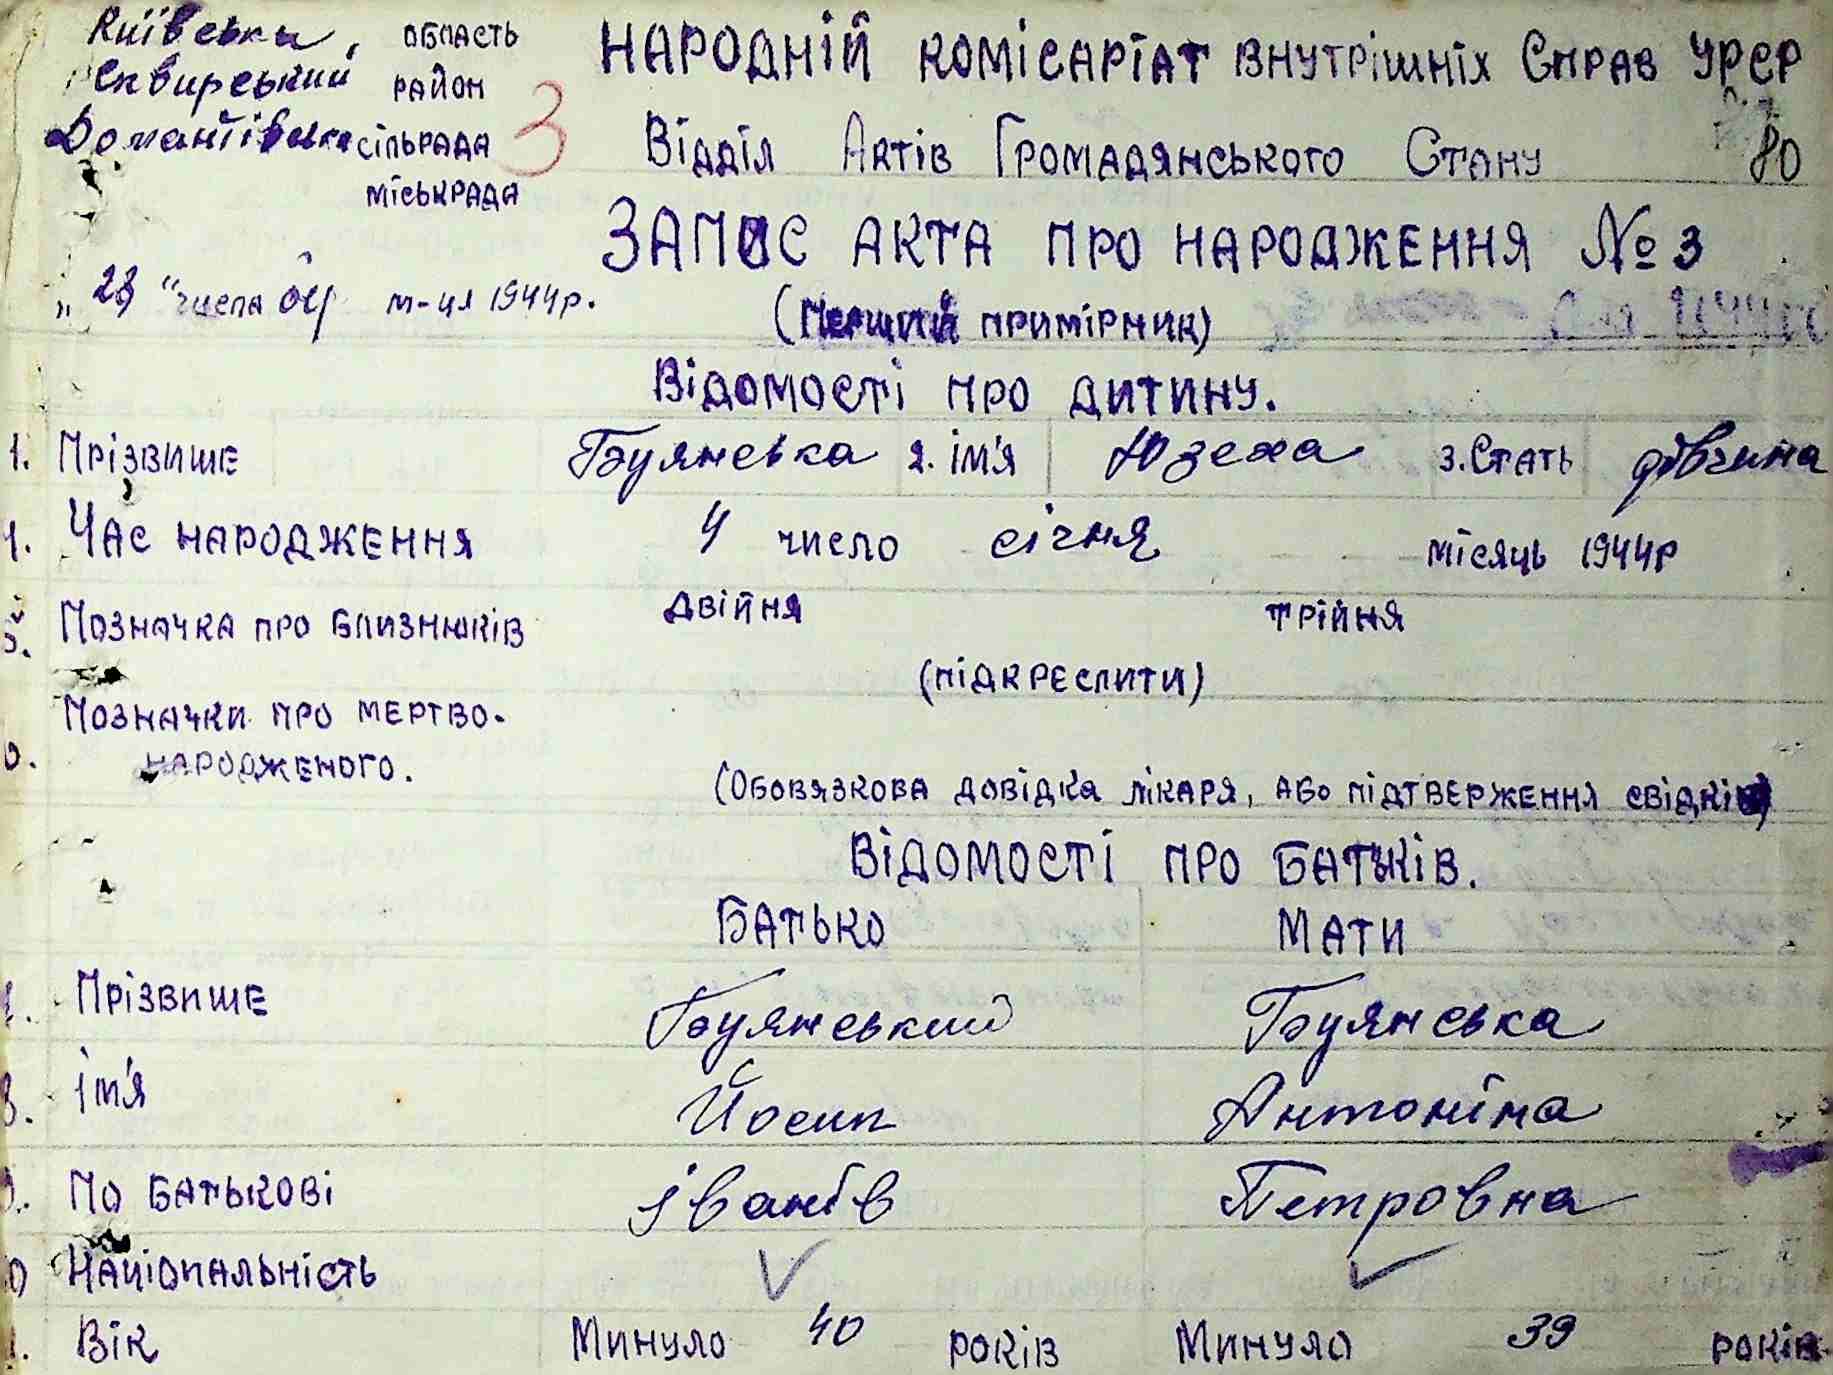 Київська, ОБЛАСТЬ
Сквирський РАЙОН
Домантівська СІЛЬРАДА
МІСЬКРАДА
3
НАРОДНІЙ КОМІСАРІАТ ВНУТРІШНІХ СПРАВ УРСР
ВІДДІЛ АКТІВ ГРОМАДЯНСЬКОГО СТАНУ
80
ЗАПИС АКТА ПРО НАРОДЖЕННЯ №3
„23“ числа м-ця 1944р.
(ПЕРШИЙ ПРИМІРНИК)
ВІДОМОСТІ ПРО ДИТИНУ.
1. ПРІЗВИШЕ Буянська 2. ІМ'Я Юзефа 3. СТАТЬ дівчина
4. ЧАС НАРОДЖЕННЯ 4 число січня МІСЯЦЬ 1944Р
5. ПОЗНАЧКА ПРО БЛИЗНЮКІВ ДВІЙНЯ ТРІЙНЯ
(ПІДКРЕСЛИТИ)
6. ПОЗНАЧКИ ПРО МЕРТВО-
НАРОДЖЕНОГО.
(ОБОВЯЗКОВА ДОВІДКА ЛІКАРЯ, АБО ПІДТВЕРЖЕННЯ СВІДКІВ)
ВІДОМОСТІ ПРО БАТЬКІВ.
БАТЬКО МАТИ
7. ПРІЗВИШЕ Буянський Буянська
8. ІМ'Я Йосип Антоніна
9. ПО БАТЬКОВІ Іванів Петровна
10 НАЦІОНАЛЬНІСТЬ
11. ВІК МИНУЛО 40 РОКІВ МИНУЛО 39 РОКІВ